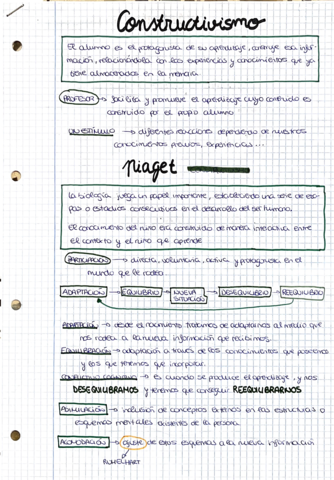 Constructivismo
El alumno es el protagonista de su aprendizaje, construye esa infor-
mación, relacionándola con las experiencias y conocimientos que ya
tiene almacenados en la memoria
PROFESOR → facilita y promueve el aprendizaje cuyo contenido es
construido por el propio alumno
UN ESTÍMULO → diferentes reacciones dependiendo de nuestros
conocimientos previos, experiencias...
Piaget
La biología juega un papel importante, estableciendo una serie de eta-
pas o estadios consecutivos en el desarrollo del ser humano.
El conocimiento del niño era construido de manera interactiva entre
el contexto y el niño que aprende
PARTICIPACIÓN → directa, voluntaria, activa y protagonista en el
mundo que le rodea
ADAPTACIÓN → EQUILIBRIO → NUEVA SITUACIÓN → DESEQUILIBRIO → REEQUILIBRIO
ADAPTACIÓN → desde el nacimiento tratamos de adaptarnos al medio que
nos rodea a la nueva información que recibimos.
EQUILIBRACIÓN → adaptación a través de los conocimientos que poseemos
y los que tenemos que incorporar.
CONFLICTO COGNITIVO → es cuando se produce el aprendizaje, y nos
DESEQUILIBRAMOS y tenemos que conseguir REEQUILIBRARNOS
ASIMILACIÓN → inclusión de conceptos externos en las estructuras o
esquemas mentales existentes de la persona.
ACOMODACIÓN → ajuste de estos esquemas a la nueva información
RUMELHART